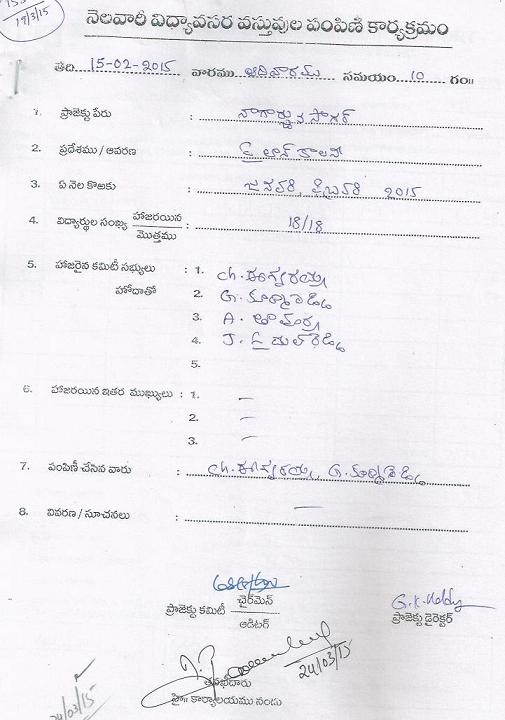 19/3/15
నెలవారీ విద్యావసర వస్తువుల పంపిణీ కార్యక్రమం
తేది 15-02-2015 వారము ఆదివారము సమయం 10 గం॥
1. ప్రాజెక్టు పేరు : నాగార్జున సాగర్
2. ప్రదేశము / ఆవరణ : కాలనీ
3. ఏ నెల కొఱకు : జనవరి, ఫిబ్రవరి 2015
4. విద్యార్థుల సంఖ్య హాజరయిన / మొత్తము : 18/18
5. హాజరైన కమిటీ సభ్యులు : 1. Ch. ఈశ్వరయ్య
హోదాతో 2. G.
3. A.
4. J.
5.
6. హాజరయిన ఇతర ముఖ్యులు : 1. –
2. –
3. –
7. పంపిణీ చేసిన వారు : Ch. ఈశ్వరయ్య, G.
8. వివరణ / సూచనలు : –
ప్రాజెక్టు కమిటీ ఛైర్మెన్ / ఆడిటర్
G.K. Reddy
ప్రాజెక్టు డైరెక్టర్
24/03/15
కార్యాలయము నందు
24/03/15